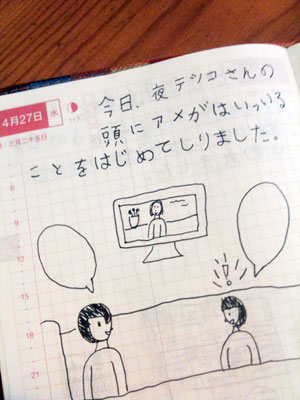 4月27日 水
旧:三月二十五日
今日、夜テツコさんの
頭にアメがはいっいる
ことをはじめてしりました。
6
9
12
15
18
21
!